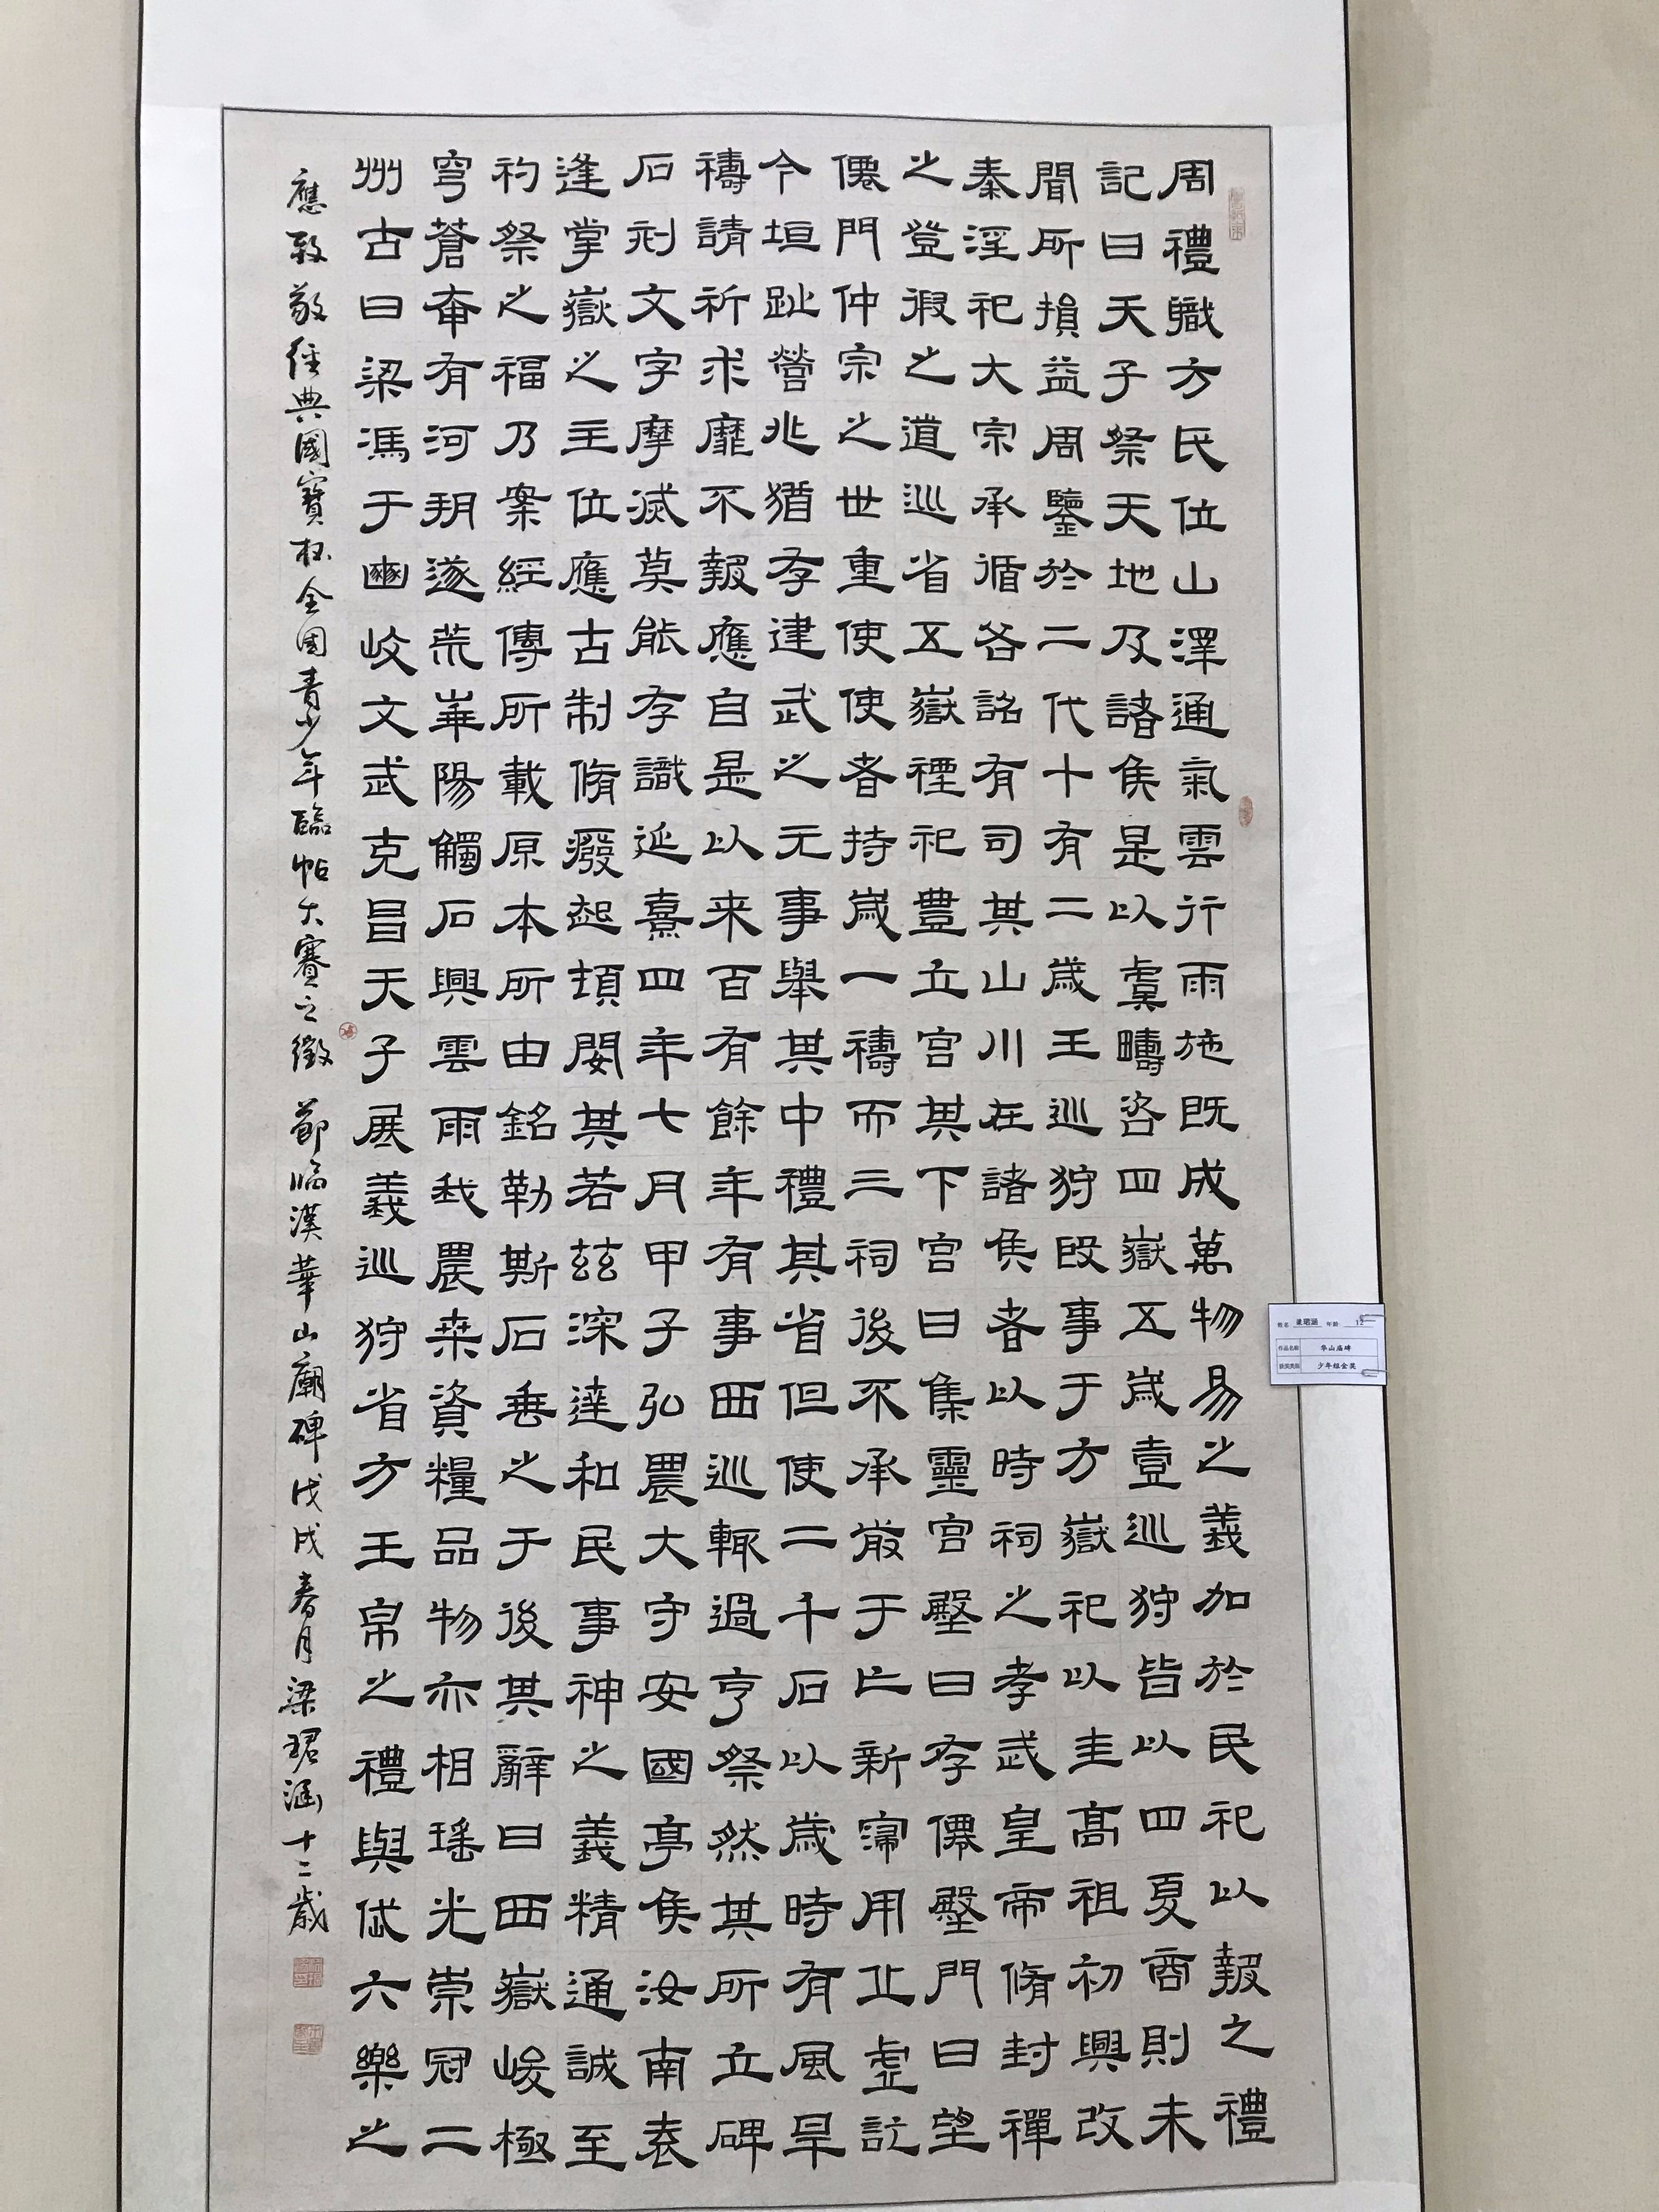 周禮職方民位山澤通氣雲行雨施既成萬物易之義加於民祀以報之禮
記曰天子祭天地及諸侯是以虞疇咨四嶽五歲壹巡狩皆以四夏商則未
聞所損益周鑒於二代十有二歲王巡狩殷事于方嶽祀以圭高祖初興改
秦淫祀大宗承循各詔有司其山川在諸侯者以時祠之孝武皇帝脩封禪
之登徦之道巡省五嶽禋祀豊立宮其下宮曰集靈宮殿曰存僊殿門曰望
僊門仲宗之世重使使者持歲一禱而三祠後不承嚴于亡新寖用丘虛訖
今垣趾營兆猶存建武之元事舉其中禮其省但使二千石以歲時有風旱
禱請祈求靡不報應自是以来百有餘年有事西巡輒過亨祭然其所立碑
石刻文字摩滅莫能存識延熹四年七月甲子弘農大守安國亭侯汝南袁
逢掌嶽之主位應古制脩廢起頓閔其若茲深達和民事神之義精通誠至
礿祭之福乃案經傳所載原本所由銘勒斯石垂之于後其辭曰西嶽峻極
穹蒼奄有河朔遂荒華陽觸石興雲雨我農桑資糧品物亦相瑤光崇冠二
州古曰梁馮于豳岐文武克昌天子展義巡狩省方玉帛之禮與岱六樂之
應致敬經典國寶杯全國青少年臨帖大賽之徵 節臨漢華山廟碑戊戌春月梁珺涵十二歲
姓名 梁珺涵 年龄 12
作品名称 华山庙碑
获奖类别 少年组金奖